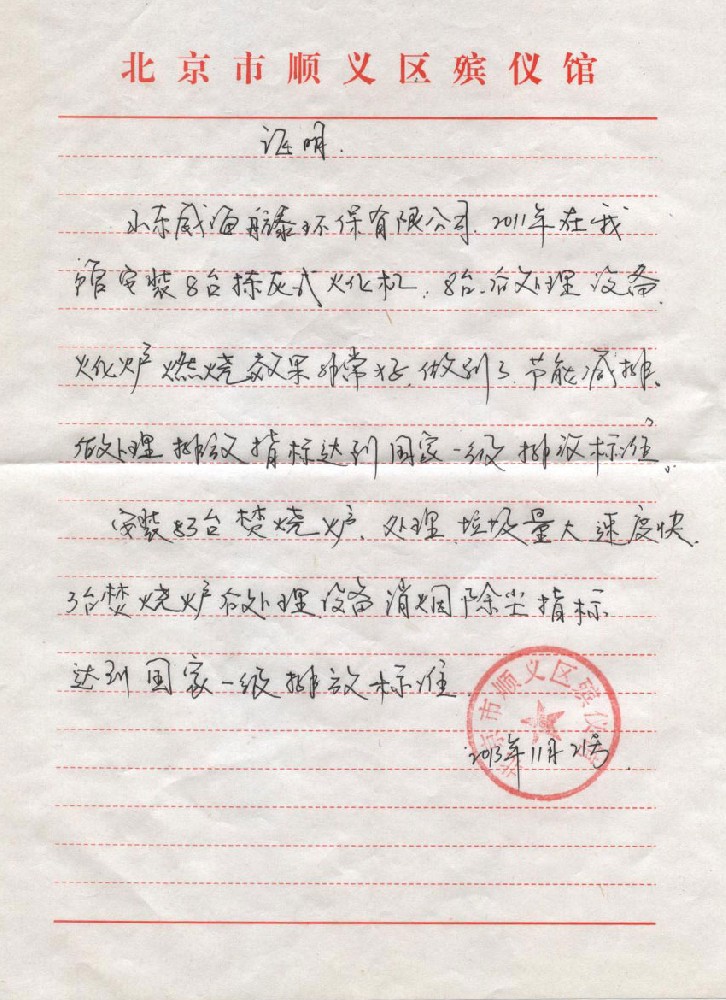 北京市顺义区殡仪馆
证明.
山东威海航泰环保有限公司.2011年在我
馆安装8台拣灰式火化机.8台后处理设备.
火化炉燃烧效果非常好,做到了节能减排.
后处理排放指标达到国家一级排放标准。
安装3台焚烧炉、处理垃圾量大速度快.
3台焚烧炉后处理设备消烟除尘指标
达到国家一级排放标准.
北京市顺义区殡仪馆
2013年11月21号.